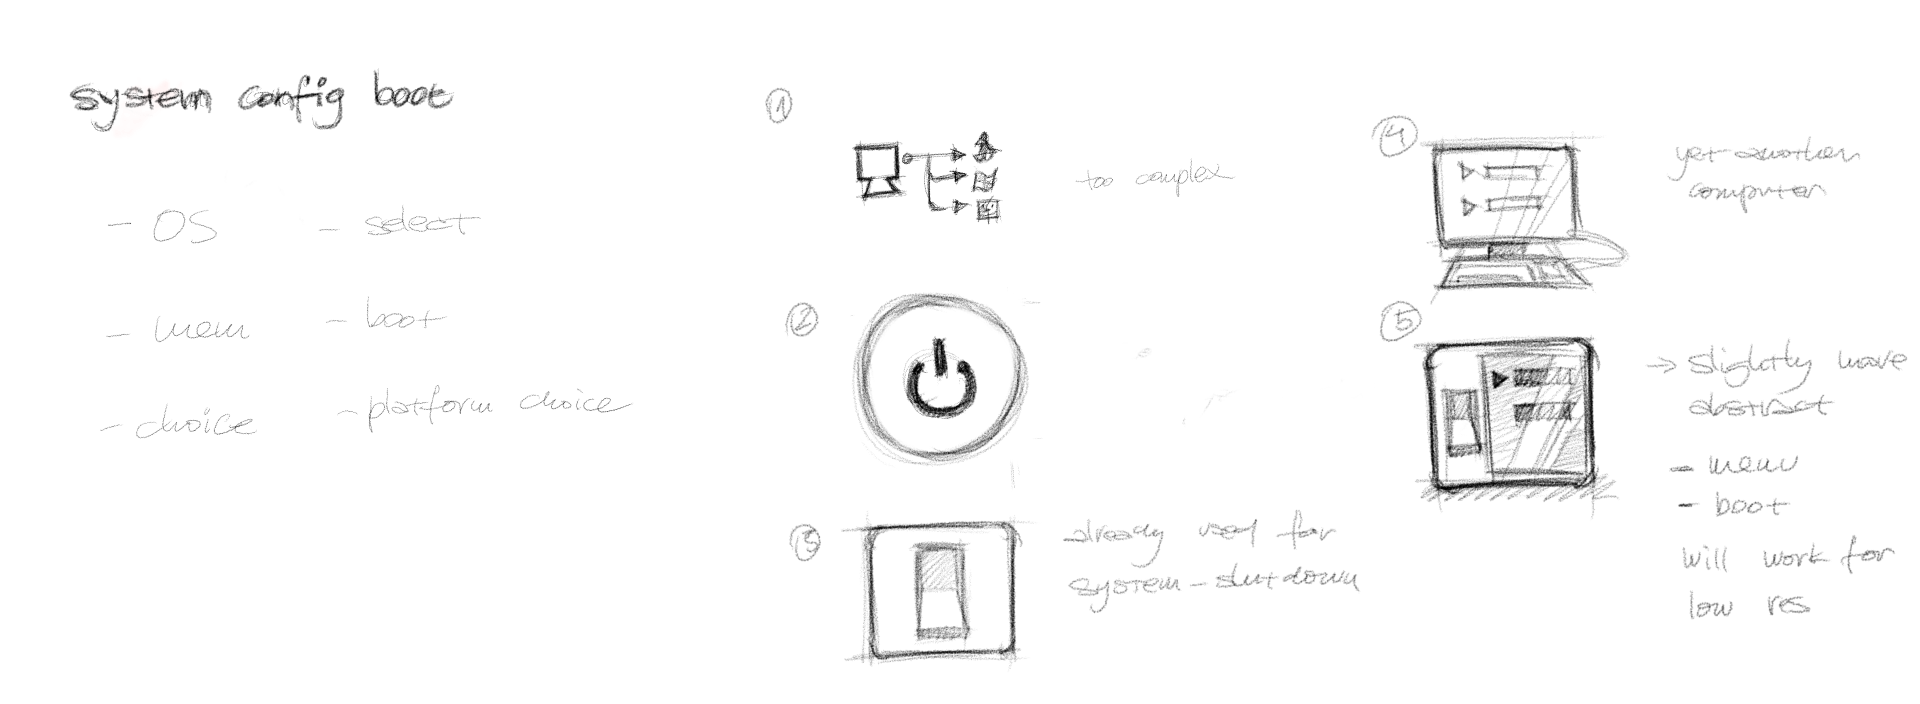 system config boot
- OS
- select
- mem
- boot
- choice
- platform choice
1
too complex
2
3
already used for
system-shutdown
4
yet another
computer
5
→ slightly more
abstract
- menu
- boot
will work for
low res